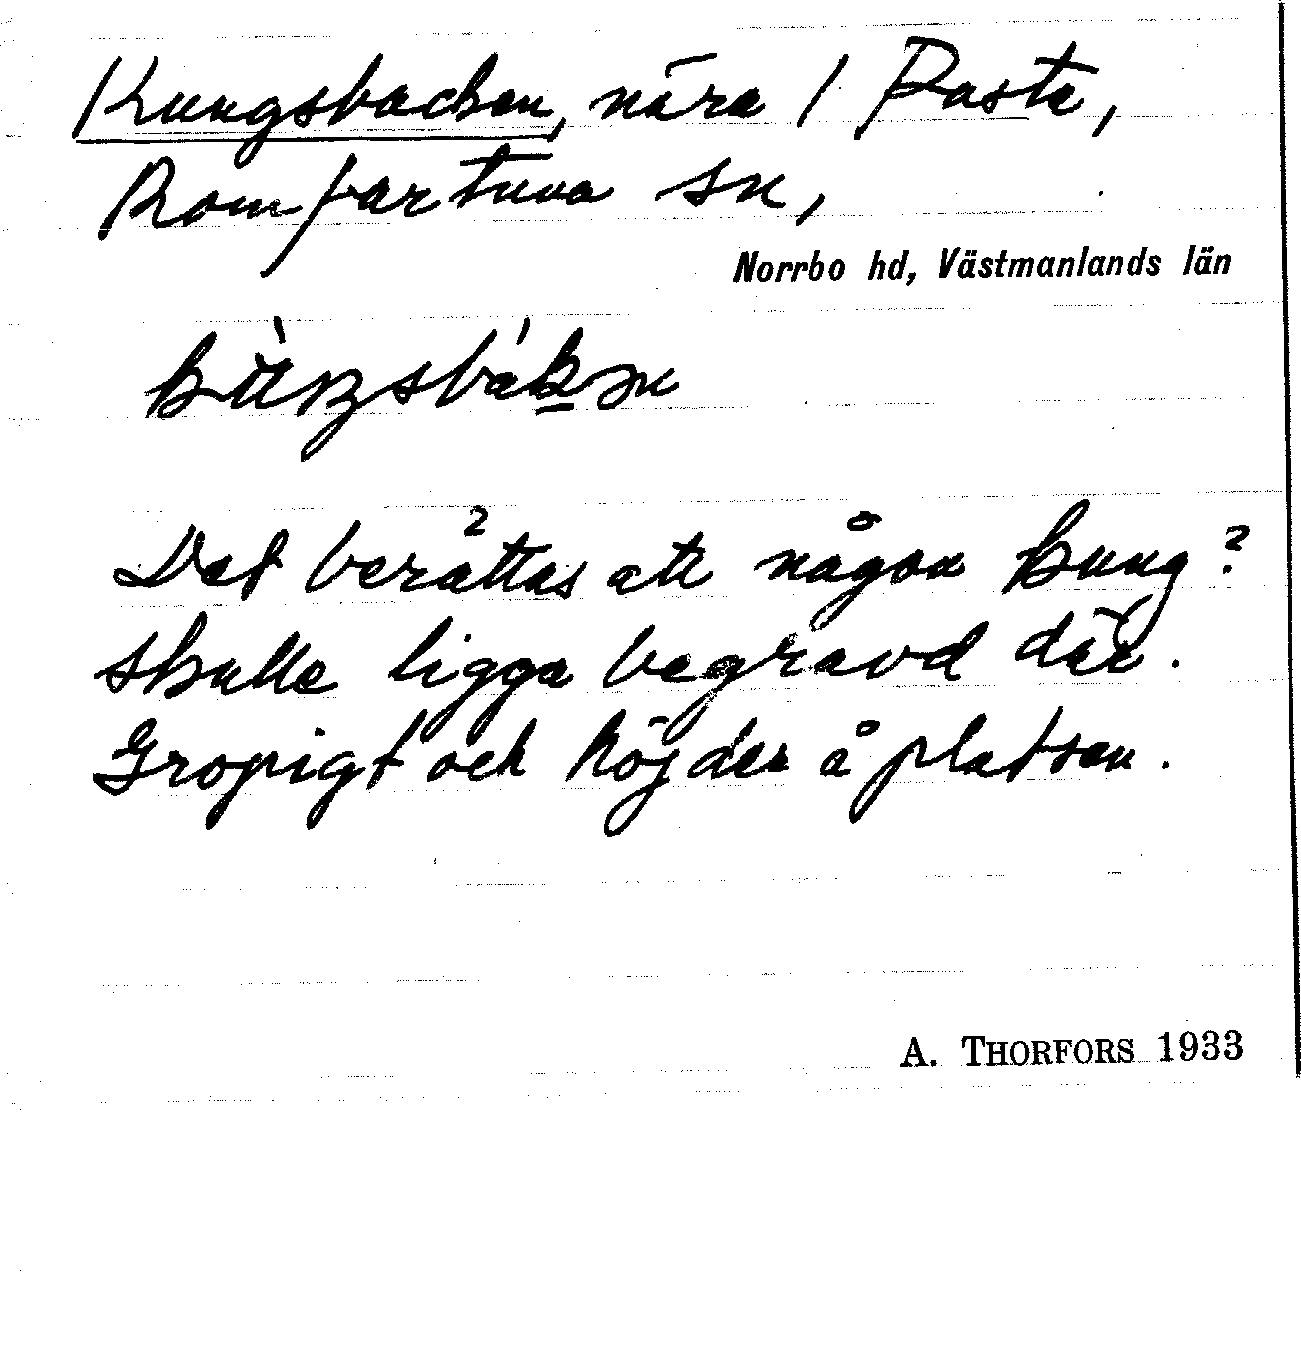 Kungsbacken, nära 1 Pasta,
Romfartuna sn,
Norrbo hd, Västmanlands län
Det berättas att någon kung?
skulle ligga begravd där.
Gropigt och höjder å platsen.
A. THORFORS 1933